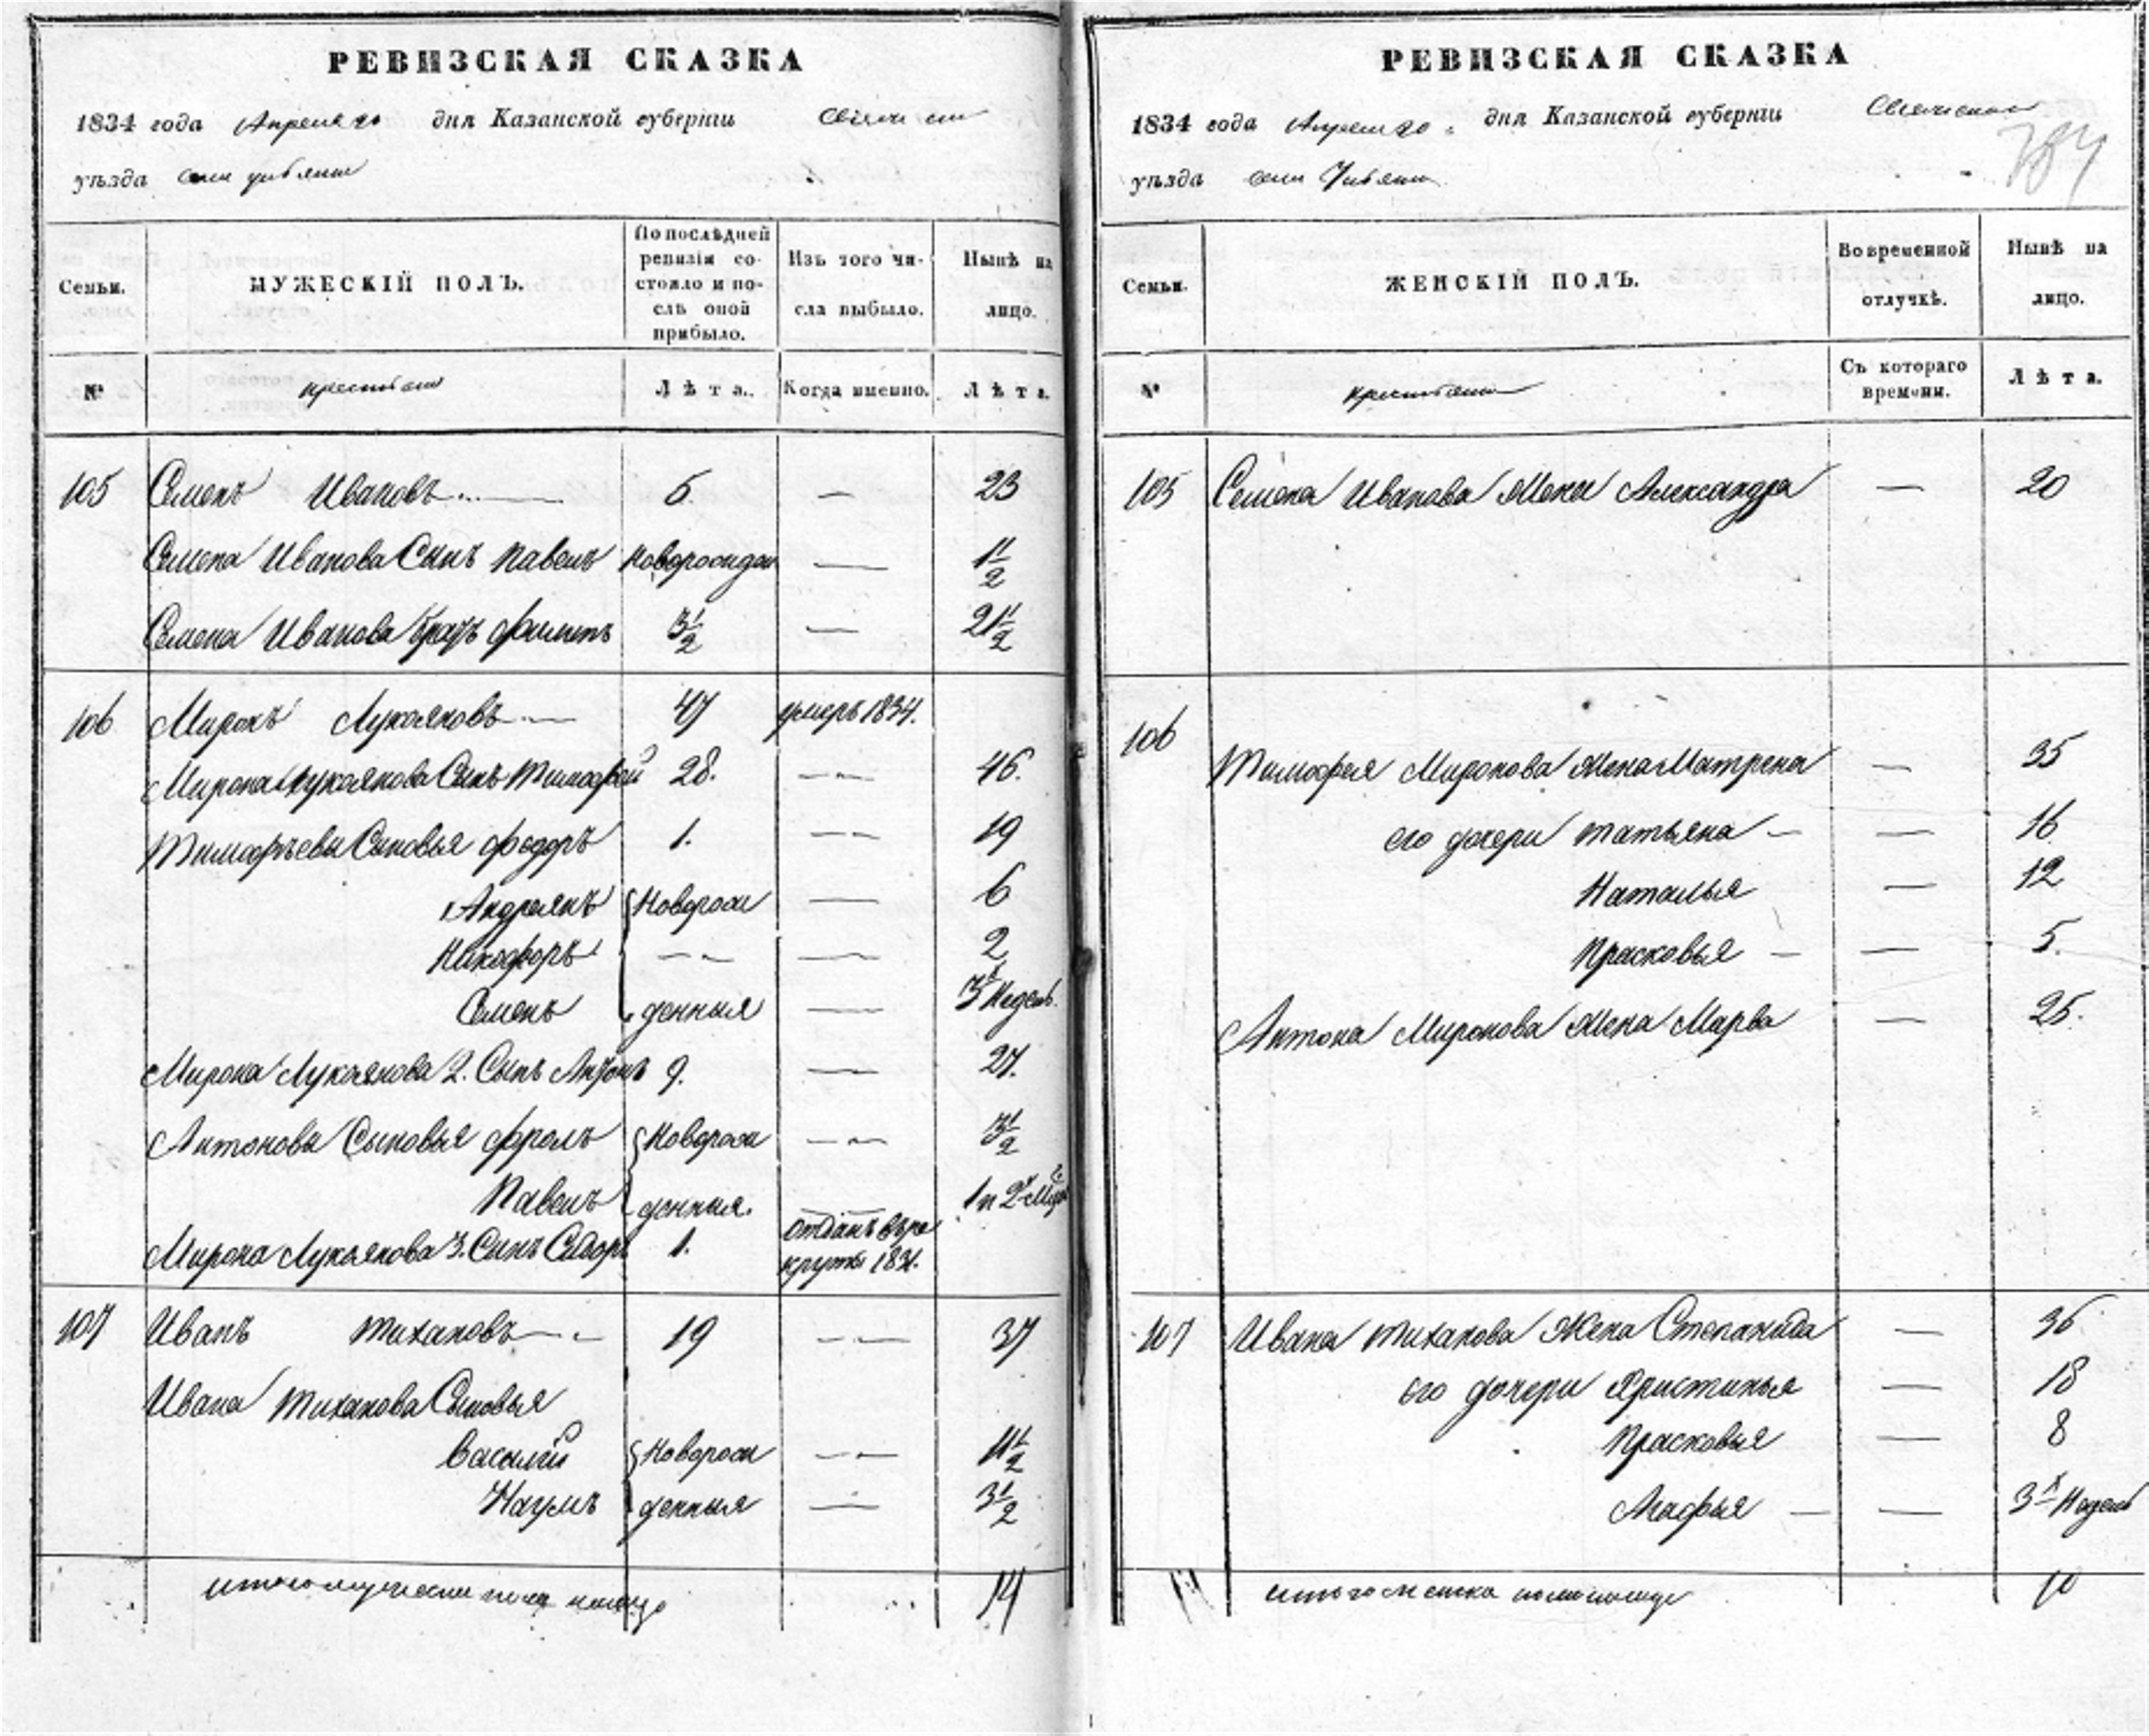 РЕВИЗСКАЯ СКАЗКА
1834 года Апреля 20 дня Казанской губернiи
уѣзда
Семьи. МУЖЕСКIЙ ПОЛЪ. По послѣдней ревизiи состояло и послѣ оной прибыло. Изъ того числа выбыло. Нынѣ на лицо.
№ Лѣта. Когда именно. Лѣта.
105 Семенъ Ивановъ 5. — 23
Семена Иванова Сынъ Павелъ — 1 1/2
Семена Иванова братъ Филипъ 3 1/2 — 21 1/2
106 Миронъ Лукояновъ 47 умеръ 1834.
Мирона Лукоянова Сынъ Тимофей 28. — 46.
Тимофѣевы Сыновья Федоръ 1. — 19
Андреянъ Новорож — 6
Никофоръ — 2
Семенъ денныя — 3х Недель.
Мирона Лукоянова 2. Сынъ Антонъ 9. — 27.
Антоновы Сыновья Фролъ Новорож — 3 1/2
Павелъ денныя. 1 и 2х
Мирона Лукоянова 3. Сынъ Сидоръ 1. отданъ въ рекруты 1831.
107 Иванъ Тихановъ 19 — 37
Ивана Тиханова Сыновья
Василий Новорож — 11 1/2
Наумъ денныя — 3 1/2
итого мужеска пола налицо 14
РЕВИЗСКАЯ СКАЗКА
1834 года Апреля 20 дня Казанской губернiи
уѣзда
Семьи. ЖЕНСКIЙ ПОЛЪ. Во временной отлучкѣ. Нынѣ на лицо.
№ Съ котораго времени. Лѣта.
105 Семена Иванова Жена Александра — 20
106
Тимофея Миронова Жена Матрена — 35
его дочери Татьяна — 16
Наталья — 12
Прасковья — 5.
Антона Миронова Жена Марва — 25.
107 Ивана Тиханова Жена Степанида — 36
его дочери Христинья — 18
Прасковья — 8
Агафья — 3х Недель
итого женска пола налицо 10